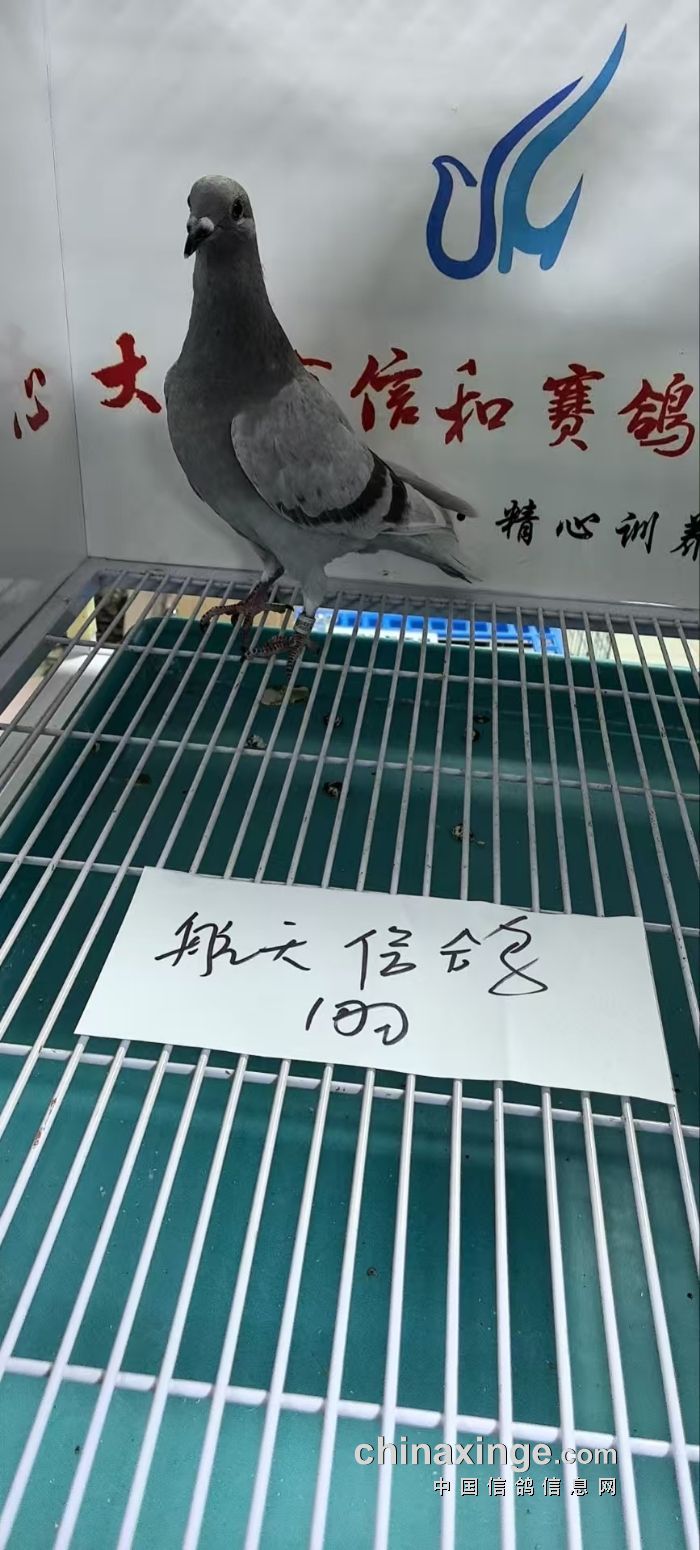 大
信和赛鸽
精心训养
航天信鸽
100
chinaxinge.com
中国信鸽信息网